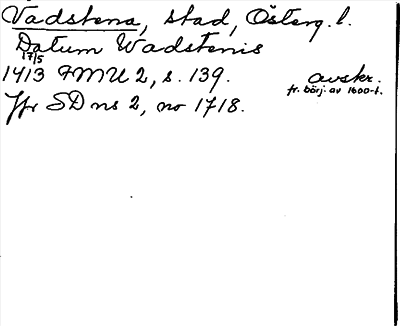 Vadstena, stad, Österg. l.
Datum Wadstenis
17/5
1413 FMU 2, s. 139. avskr.
fr. börj. av 1600-t.
Jfr SD ns 2, no 1718.